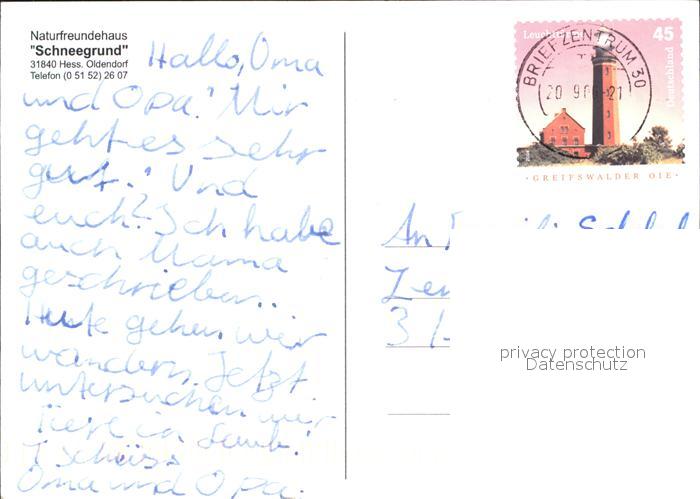 Naturfreundehaus
"Schneegrund"
31840 Hess. Oldendorf
Telefon (0 51 52) 26 07
Hallo, Oma
und Opa! Mir
geht es sehr
gut! Und
euch? Ich habe
auch Mama
geschrieben.
Heute gehen wir
wandern. Jetzt
untersuchen wir
Tiere in Laub!
Tschüss
Oma und Opa.
Leuchttürme 45
Deutschland
BRIEFZENTRUM 30
20 9 06-21
· GREIFSWALDER OIE ·
An
3
privacy protection
Datenschutz